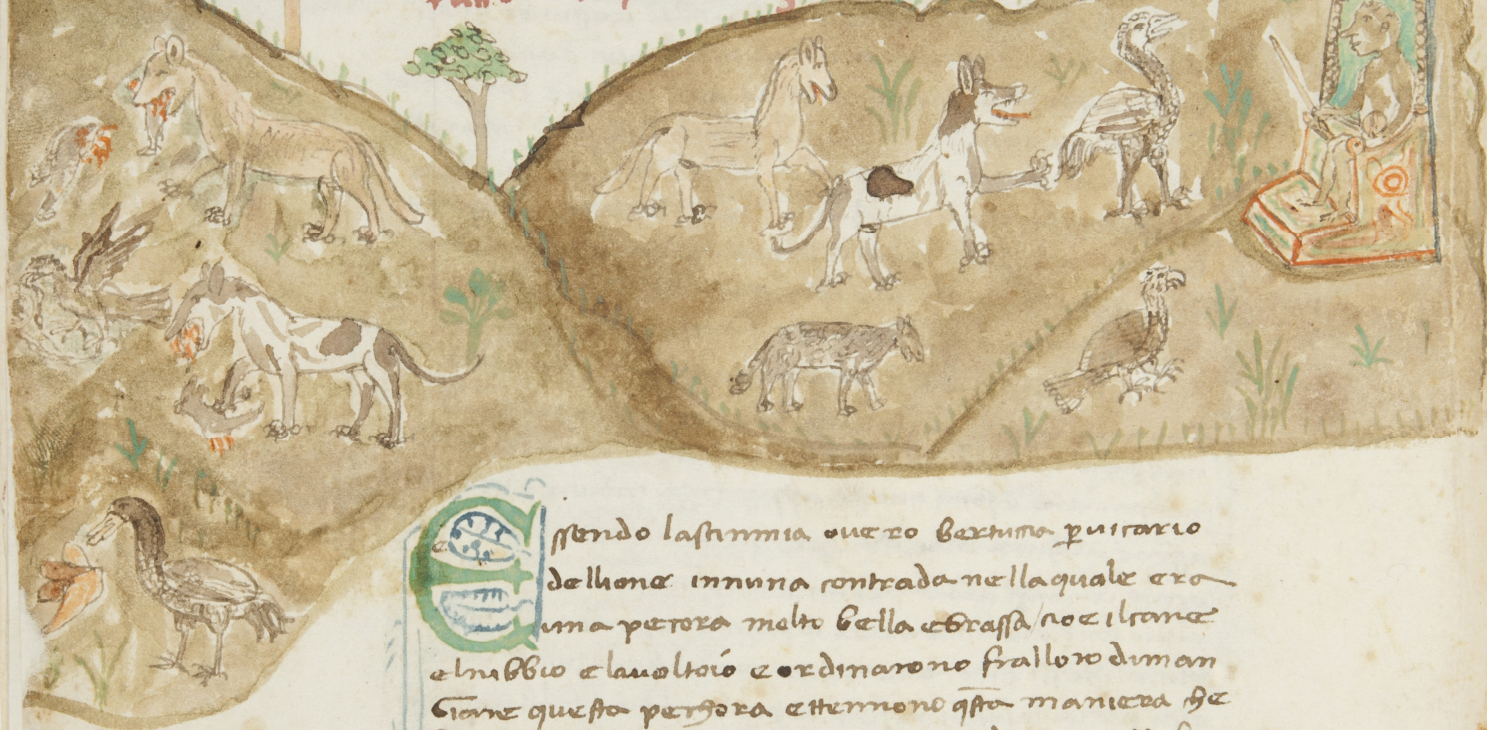 Essendo lascimmia overo bertuccia p̱ vicario
dellione innuna contrada nella quale era
una pecora molto bella egrassa / cioe ilcane
elnibbio elavoltoio eordinarono fralloro diman
Giare questa pechora ettennono q̄sta maniera che